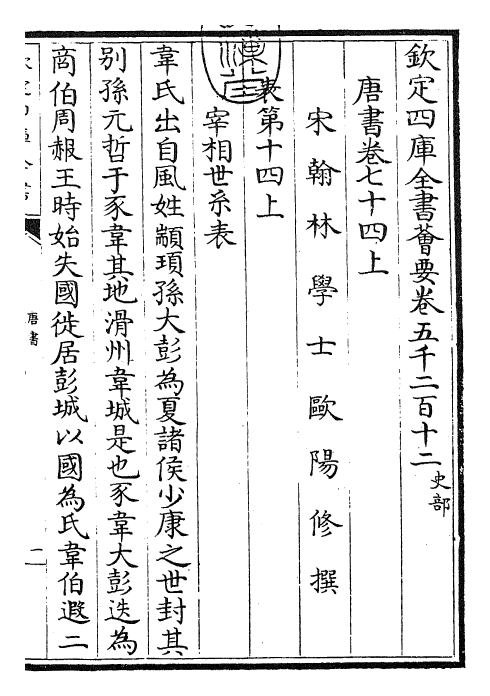 欽定四庫全書薈要卷五千二百十二 史部
唐書卷七十四上
宋翰林學士歐陽修撰
表第十四上
宰相世系表
韋氏出自風姓顓頊孫大彭為夏諸侯少康之世封其
别孫元哲于豕韋其地滑州韋城是也豕韋大彭迭為
商伯周赧王時始失國徙居彭城以國為氏韋伯遐二
唐書